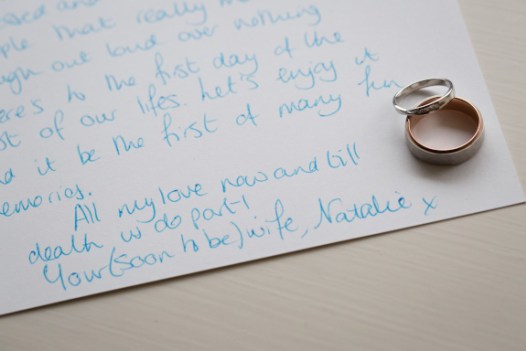 and
ple that really m
ugh out loud over nothing.
eres to the first day of the
st of our lifes. Let's enjoy it
d it be the first of many fun
emories.
All my love now and till
death us do part!
Your (soon to be) wife, Natalie x